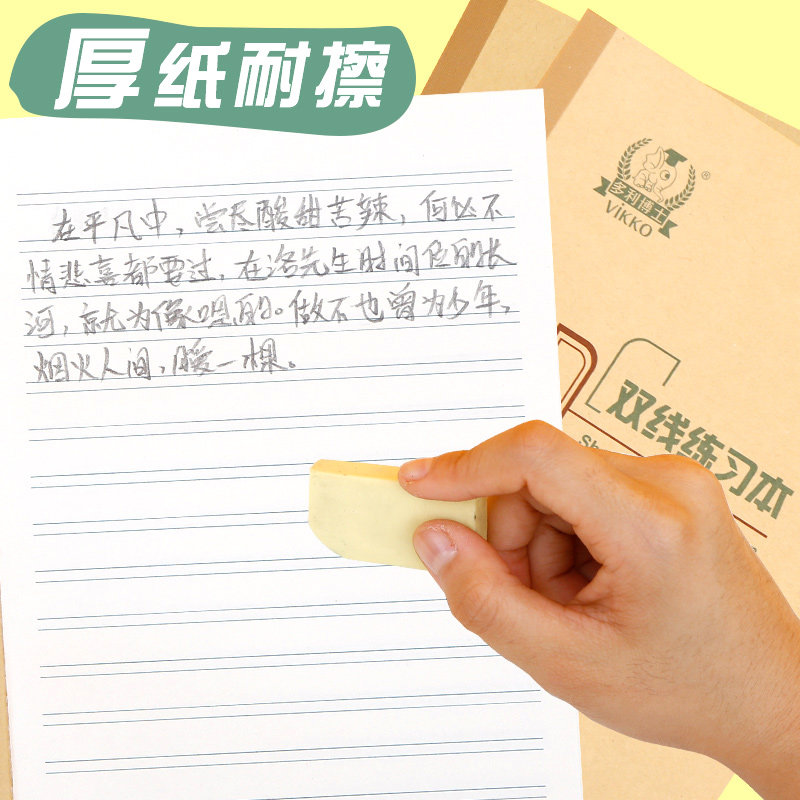 厚纸耐擦
在平凡中，尝尽酸甜苦辣，何必不
情悲喜都要过，在洛先生时间的长
河，就为像的。做不也曾为少年，
烟火人间，暖一棵。
多利博士
VIKKO
®
双线练习本
Sh